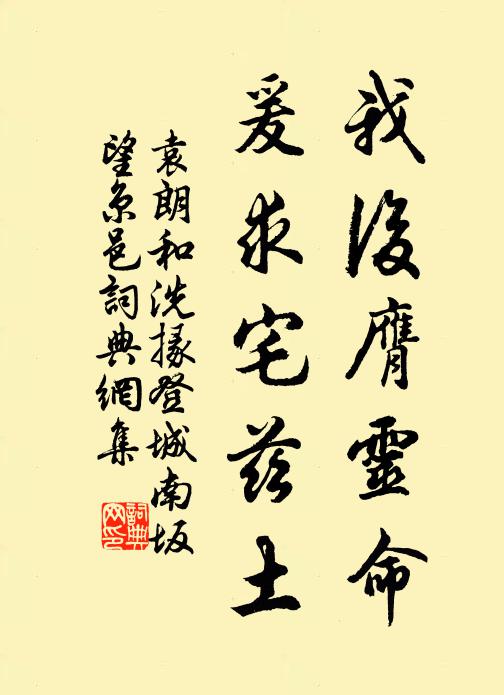 我後膺靈命
爰求宅茲土
袁朗和洗掾登城南坂
望京邑詞典網集
詞典
网印